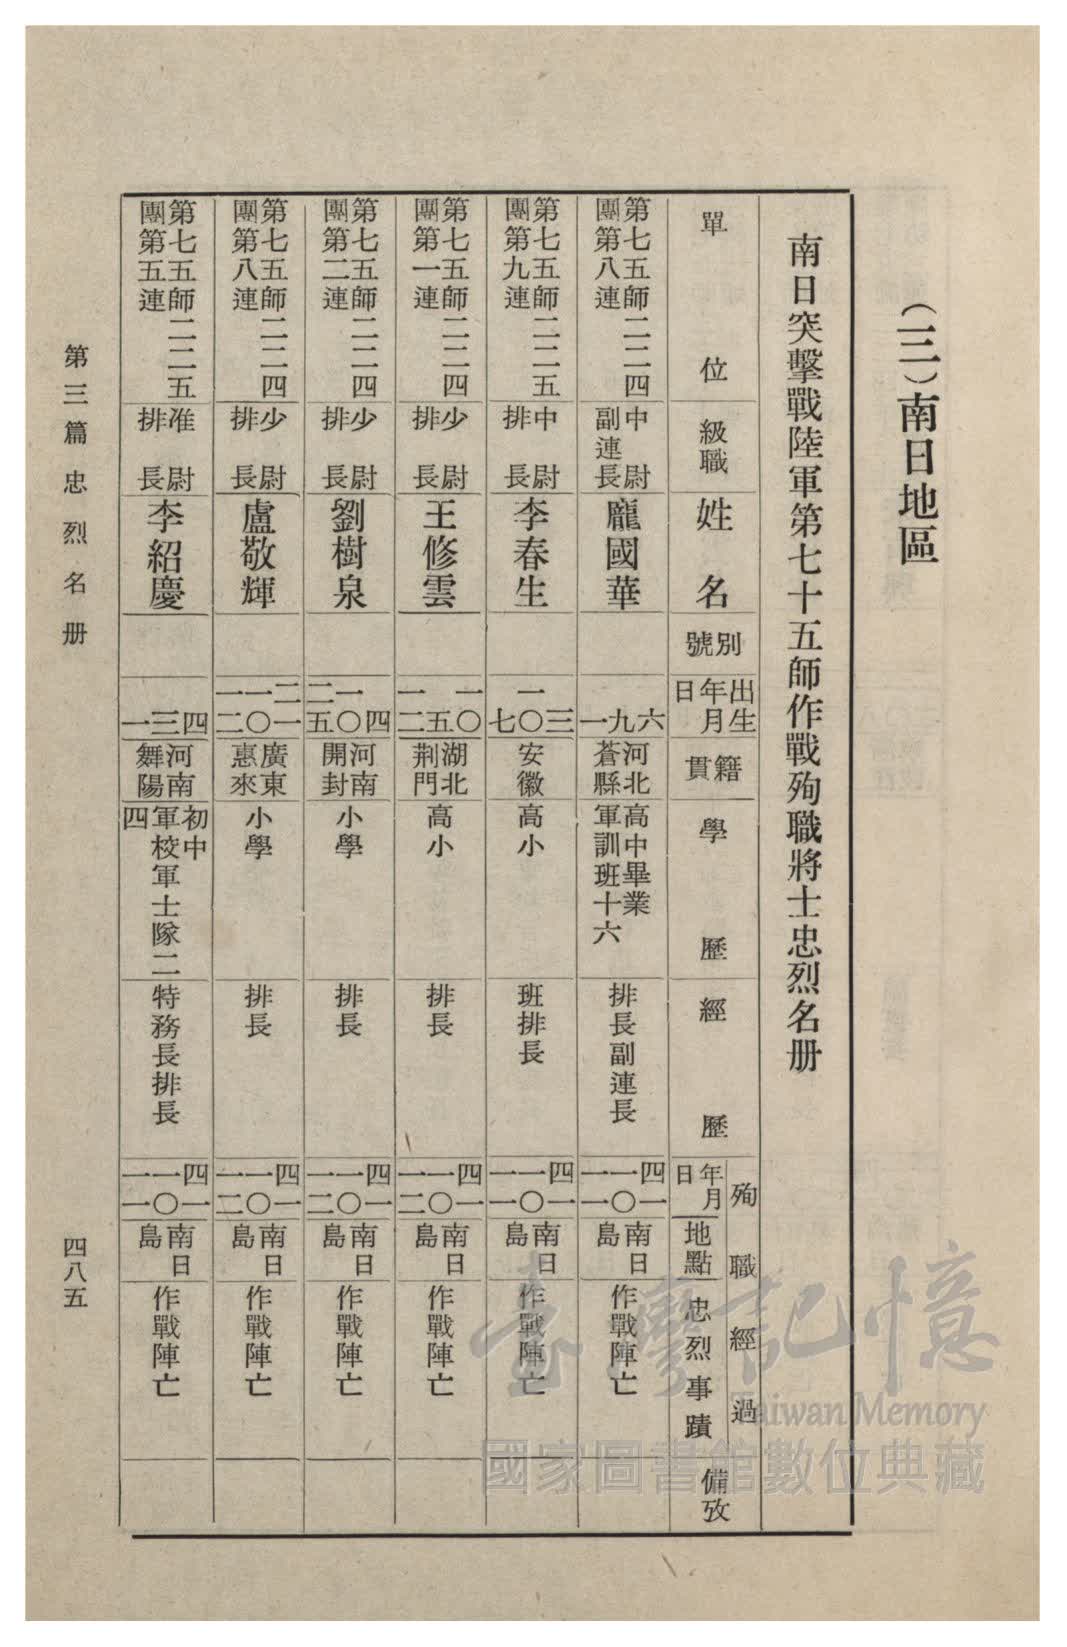 (三)南日地區
南日突擊戰陸軍第七十五師作戰殉職將士忠烈名册
單位
級職
姓名
別號
出生年月日
籍貫
學歷
經歷
殉職經過
年月日
地點
忠烈事蹟
備攷
第七五師二二四
團第八連
中尉
副連長
龐國華
六
九
一
河北
蒼縣
高中畢業
軍訓班十六
排長副連長
四一
一〇
一一
南日
島
作戰陣亡
第七五師二二五
團第九連
中尉
排長
李春生
三
一〇
七
安徽
高小
班排長
四一
一〇
一一
南日
島
作戰陣亡
第七五師二二四
團第一連
少尉
排長
王修雲
一〇
五
一二
湖北
荆門
高小
排長
四一
一〇
一二
南日
島
作戰陣亡
第七五師二二四
團第二連
少尉
排長
劉樹泉
四
一〇
二五
河南
開封
小學
排長
四一
一〇
一二
南日
島
作戰陣亡
第七五師二二四
團第八連
少尉
排長
盧敬輝
二一
一〇
一二
廣東
惠來
小學
排長
四一
一〇
一二
南日
島
作戰陣亡
第七五師二二五
團第五連
准尉
排長
李紹慶
四
三
一
河南
舞陽
初中
軍校軍士隊二
四
特務長排長
四一
一〇
一一
南日
島
作戰陣亡
第三篇 忠烈名册
四八五
臺灣記憶
Taiwan Memory
國家圖書館數位典藏